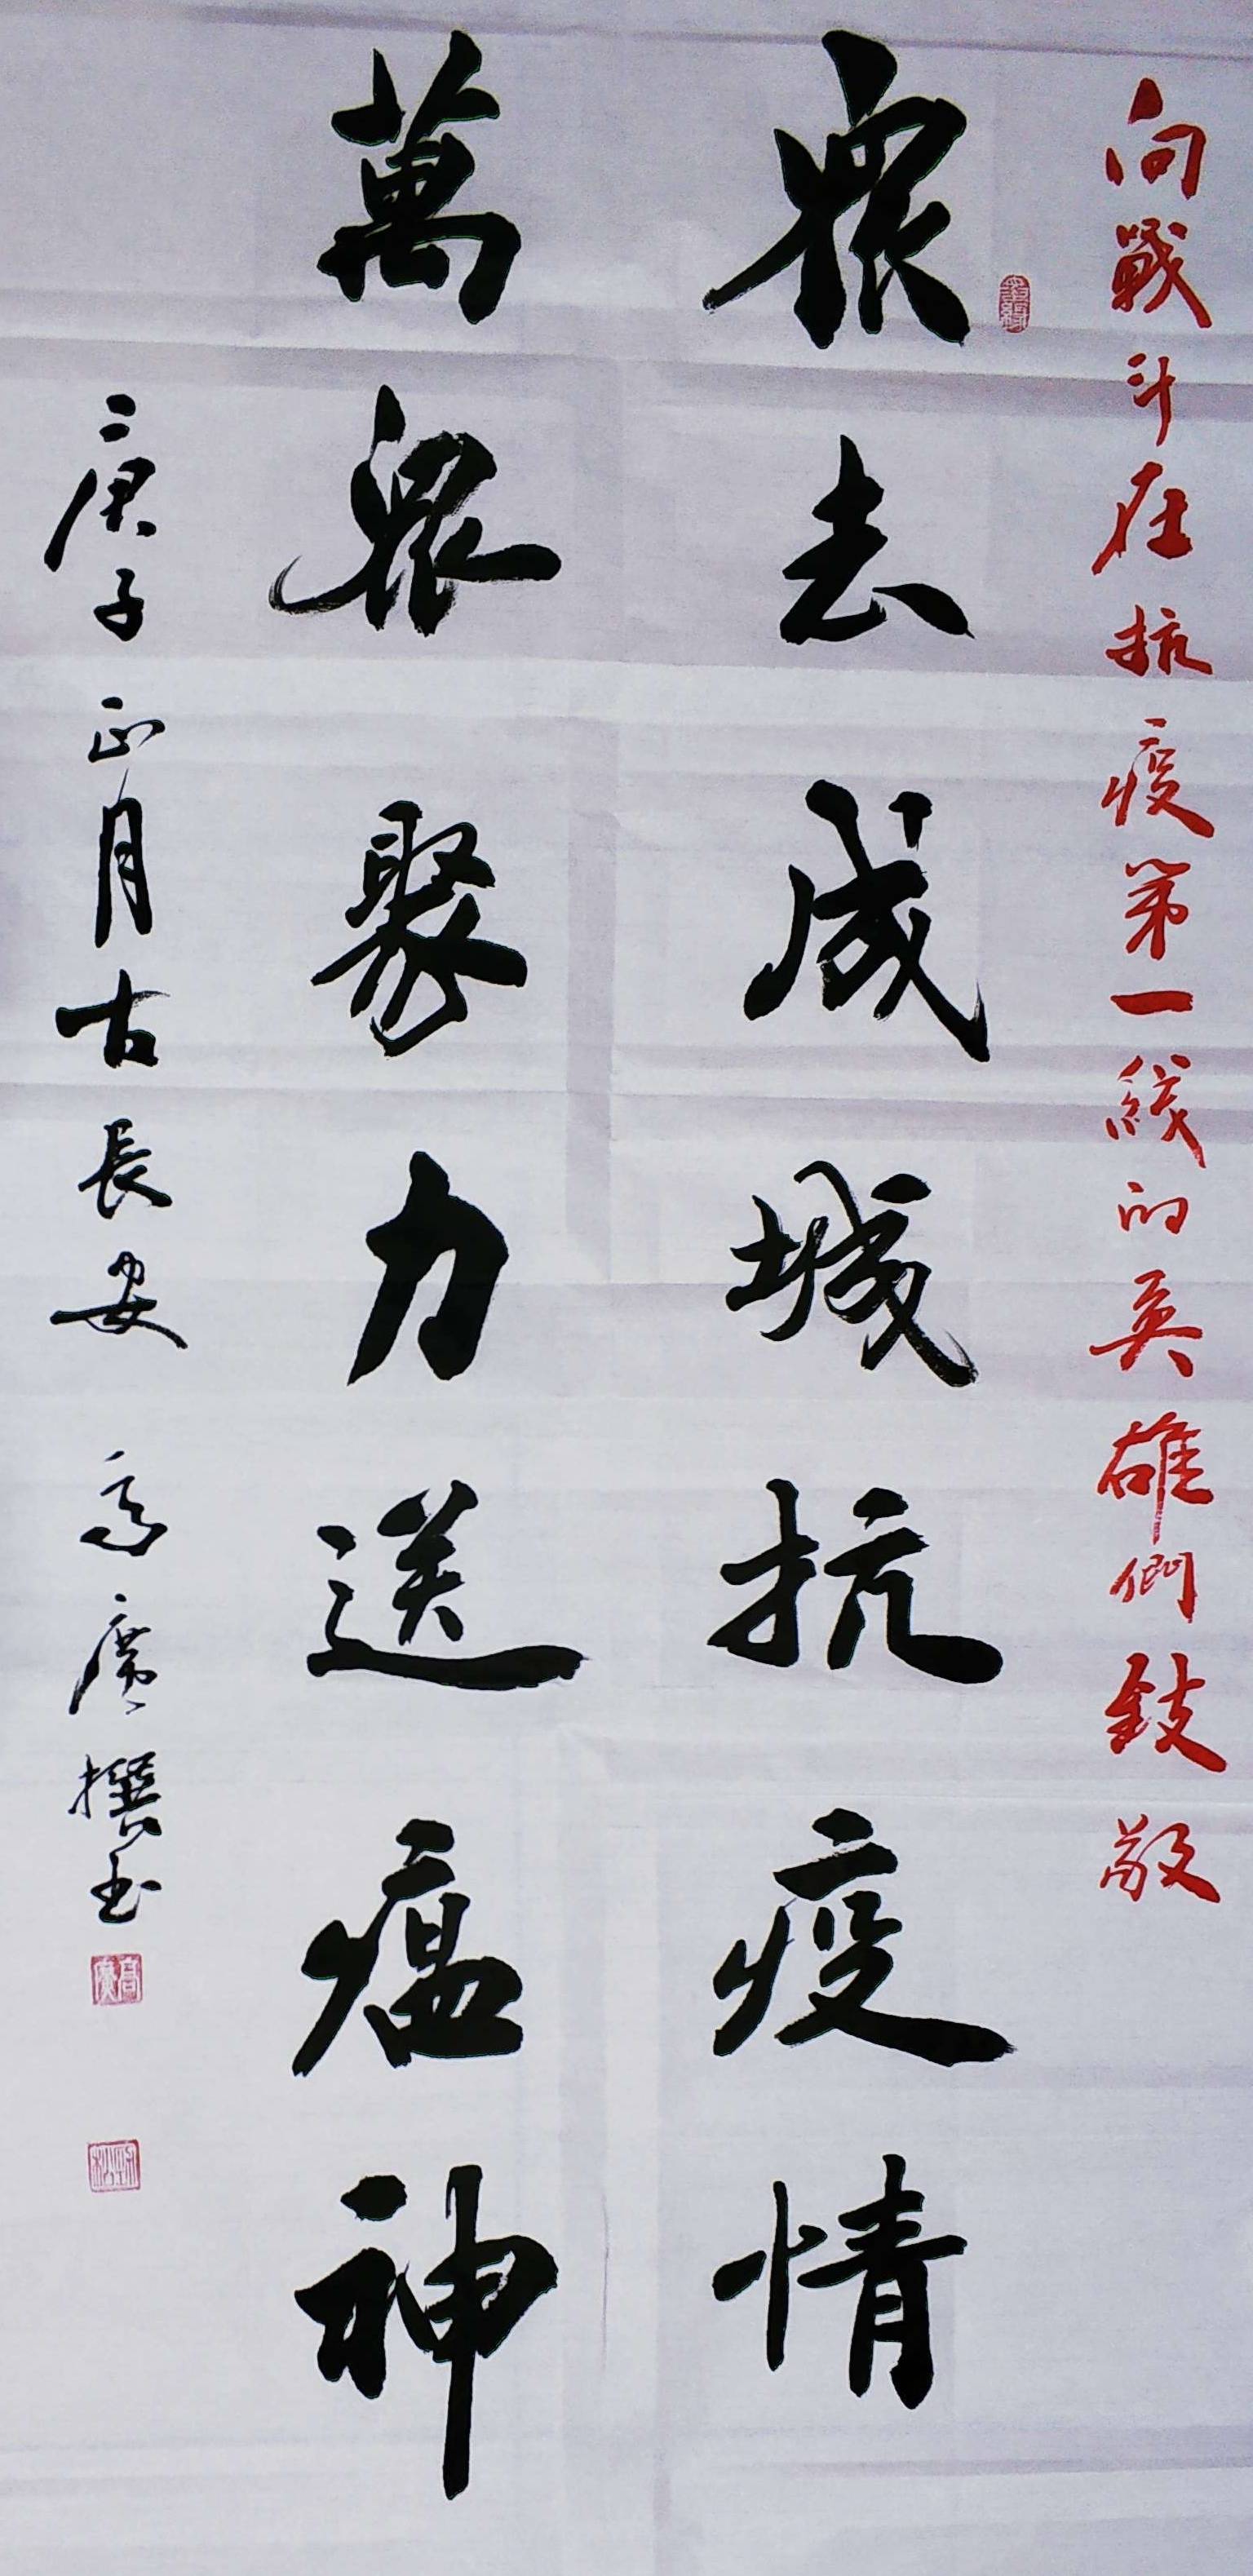 向戰斗在抗疫第一綫的英雄們致敬
眾志成城抗疫情
萬眾聚力送瘟神
庚子正月古長安 高廣撰书
高廣